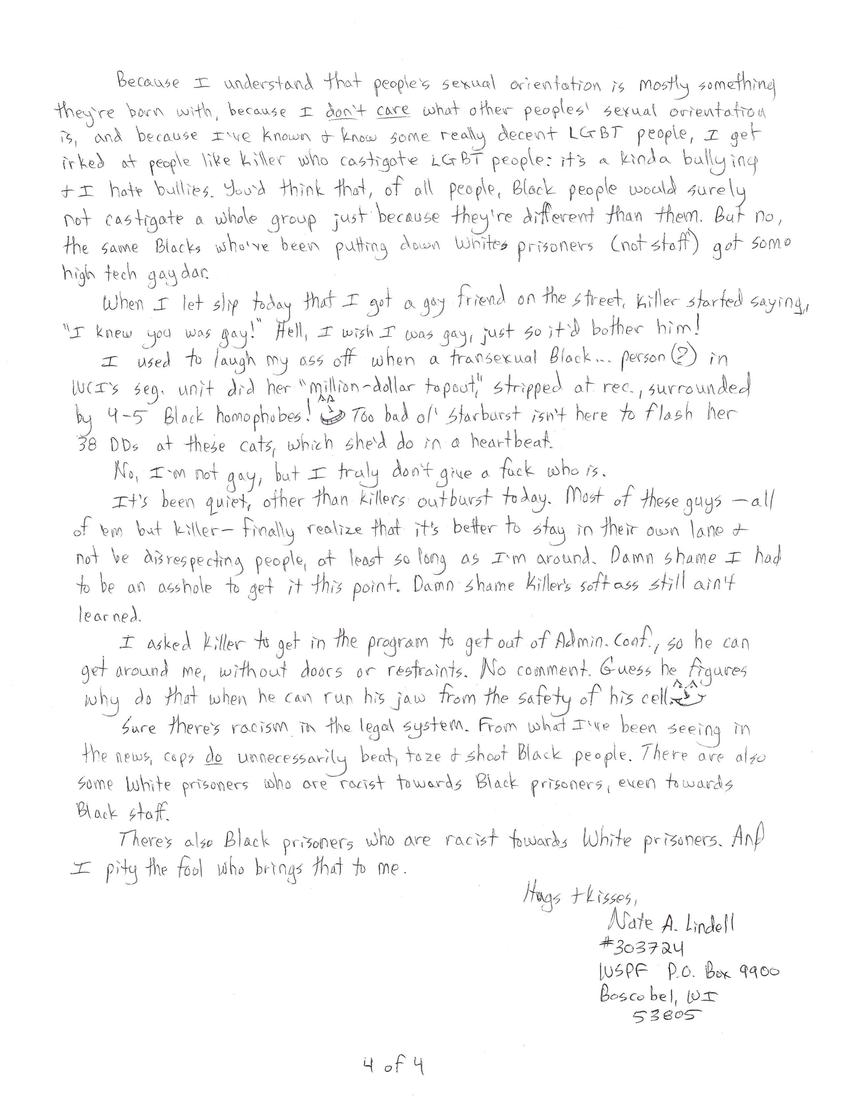 Because I understand that people's sexual orientation is mostly something
they're born with, because I don't care what other peoples' sexual orientation
is, and because I've known + know some really decent LGBT people, I get
irked at people like Killer who castigate LGBT people: it's a kinda bullying
+ I hate bullies. You'd think that, of all people, Black people would surely
not castigate a whole group just because they're different than them. But no,
the same Blacks who've been putting down Whites prisoners (not staff) got some
high tech gaydar.
When I let slip today that I got a gay friend on the street, Killer started saying,
"I knew you was gay!" Hell, I wish I was gay, just so it'd bother him!
I used to laugh my ass off when a transexual Black... person (?) in
WCI's seg. unit did her "million-dollar topout," stripped at rec., surrounded
by 4-5 Black homophobes! Too bad ol' Starburst isn't here to flash her
38 DDs at these cats, which she'd do in a heartbeat.
No, I'm not gay, but I truly don't give a fuck who is.
It's been quiet, other than Killers outburst today. Most of these guys – all
of 'em but Killer – finally realize that it's better to stay in their own lane +
not be disrespecting people, at least so long as I'm around. Damn shame I had
to be an asshole to get it this point. Damn shame Killer's soft ass still ain't
learned.
I asked Killer to get in the program to get out of Admin. Conf., so he can
get around me, without doors or restraints. No comment. Guess he figures
why do that when he can run his jaw from the safety of his cell.
Sure there's racism in the legal system. From what I've been seeing in
the news, cops do unnecessarily beat, taze + shoot Black people. There are also
some White prisoners who are racist towards Black prisoners, even towards
Black staff.
There's also Black prisoners who are racist towards White prisoners. And
I pity the fool who brings that to me.
Hugs + kisses,
Nate A. Lindell
#303724
WSPF P.O. Box 9900
Boscobel, WI
53805
4 of 4